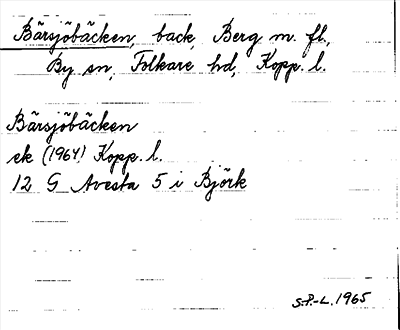 Bärsjöbäcken, back, Berg m. fl.,
By sn, Folkare hd, Kopp. l.
Bärsjöbäcken
ek (1964) Kopp. l.
12 G Avesta 5 i Björk
S.P.-L. 1965